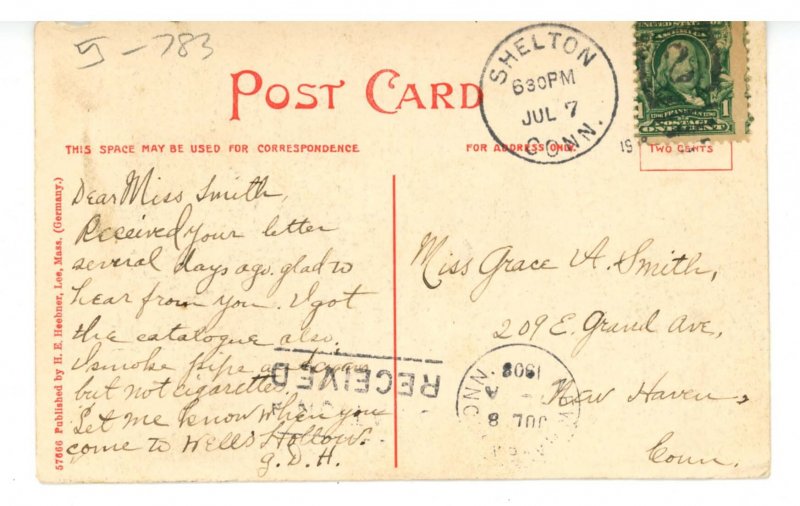 5 - 783
POST CARD
SHELTON
630PM
JUL 7
CONN.
1
POSTAGE
ONE CENT
THIS SPACE MAY BE USED FOR CORRESPONDENCE
FOR ADDRESS ONLY
TWO CENTS
57666 Published by H. E. Heebner, Lee, Mass. (Germany.)
Dear Miss Smith,
Received your letter
several days ago. glad to
hear from you. I got
the catalogue also.
I smoke pipe
but not cigarette
Let me know when you
come to Wells Hollow.
G. D. H.
Miss Grace A. Smith,
209 E. Grand Ave,
New Haven,
Conn.
RECEIVED
CONN.
JUL 8
A
1908